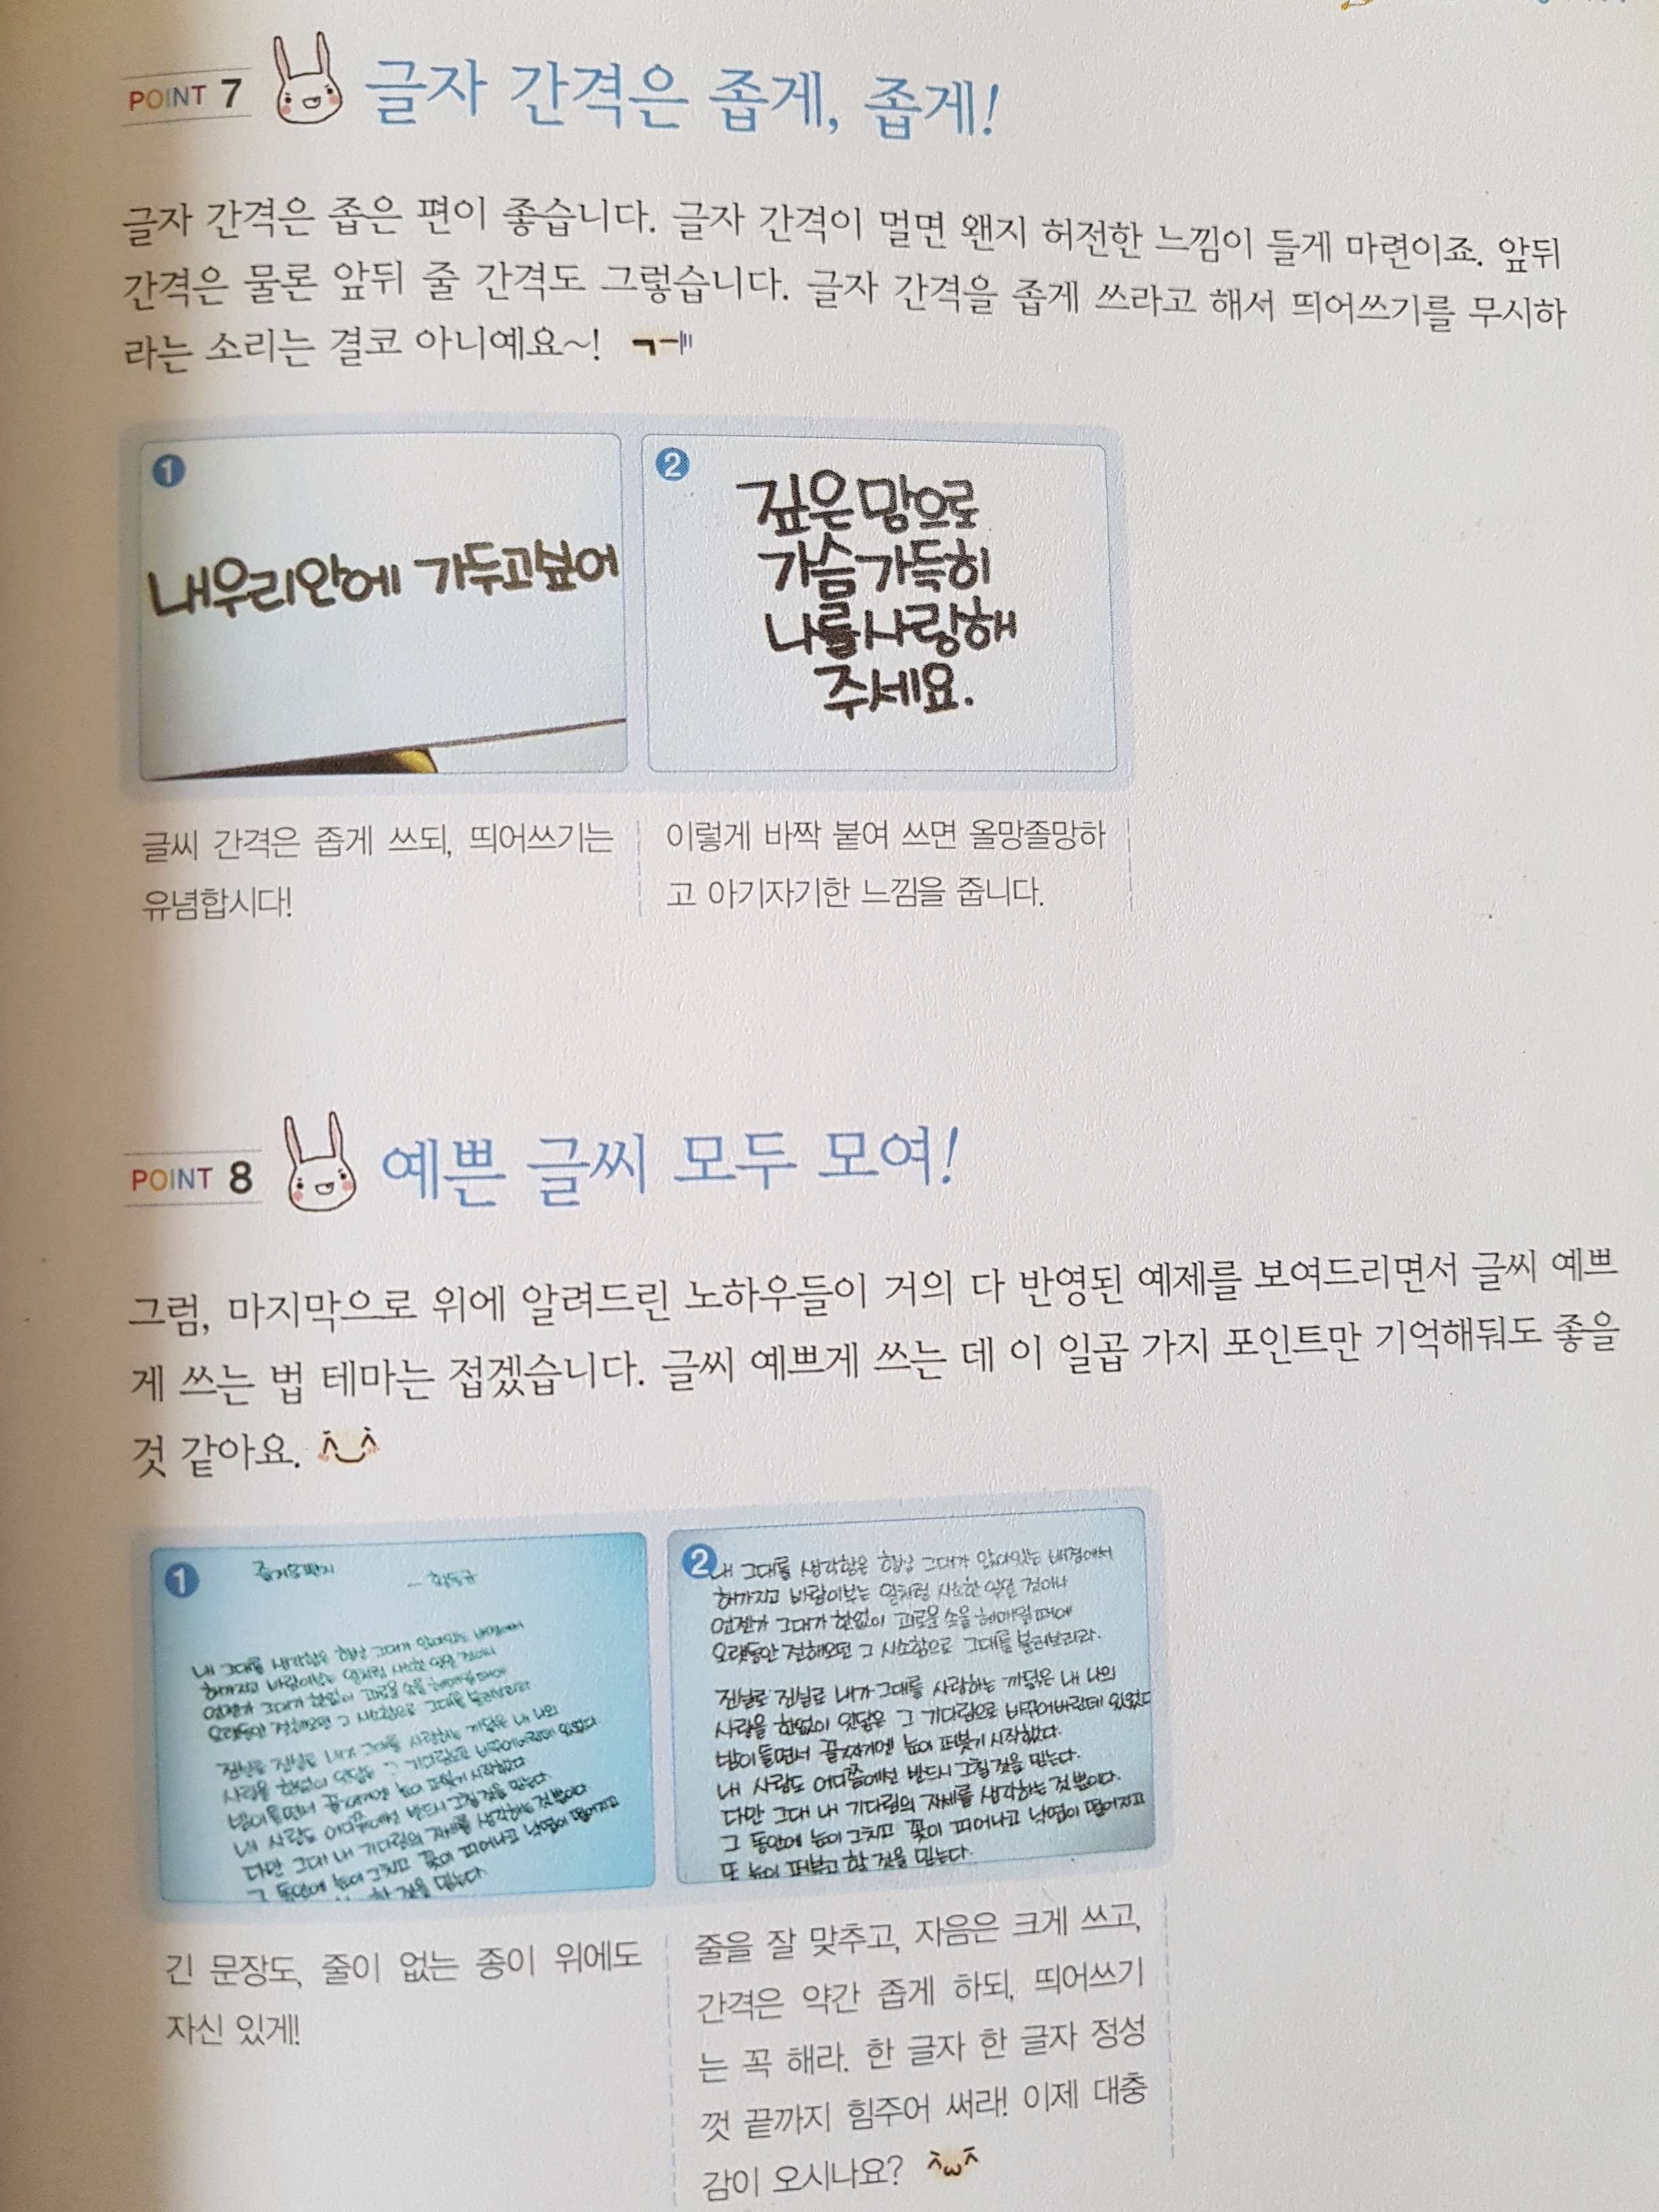 POINT 7 글자 간격은 좁게, 좁게!
글자 간격은 좁은 편이 좋습니다. 글자 간격이 멀면 왠지 허전한 느낌이 들게 마련이죠. 앞뒤
간격은 물론 앞뒤 줄 간격도 그렇습니다. 글자 간격을 좁게 쓰라고 해서 띄어쓰기를 무시하
라는 소리는 결코 아니예요~!
1
내우리안에 가두고싶어
2
깊은맘으로
가슴가득히
나를사랑해
주세요.
글씨 간격은 좁게 쓰되, 띄어쓰기는
유념합시다!
이렇게 바짝 붙여 쓰면 올망졸망하
고 아기자기한 느낌을 줍니다.
POINT 8 예쁜 글씨 모두 모여!
그럼, 마지막으로 위에 알려드린 노하우들이 거의 다 반영된 예제를 보여드리면서 글씨 예쁘
게 쓰는 법 테마는 접겠습니다. 글씨 예쁘게 쓰는 데 이 일곱 가지 포인트만 기억해둬도 좋을
것 같아요.
1
즐거운편지
- 황동규
내 그대를 생각함은 항상 그대가 앉아있는 배경에서
해가지고 바람이부는 일처럼 사소한 일일 것이나
언젠가 그대가 한없이 괴로움 속을 헤매일때에
오랫동안 전해오던 그 사소함으로 그대를 불러보리라.
진실로 진실로 내가 그대를 사랑하는 까닭은 내 나의
사랑을 한없이 잇닿은 그 기다림으로 바꾸어버린데 있었다.
밤이들면서 골짜기엔 눈이 퍼붓기 시작했다
내 사랑도 어디쯤에선 반드시 그칠것을 믿는다.
다만 그대 내 기다림의 자세를 생각하는것뿐이다.
그 동안에 눈이 그치고 꽃이 피어나고 낙엽이 떨어지고
할 것을 믿는다.
2
내 그대를 생각함은 항상 그대가 앉아있는 배경에서
해가지고 바람이부는 일처럼 사소한 일일 것이나
언젠가 그대가 한없이 괴로움 속을 헤매일때에
오랫동안 전해오던 그 사소함으로 그대를 불러보리라.
진실로 진실로 내가 그대를 사랑하는 까닭은 내 나의
사랑을 한없이 잇닿은 그 기다림으로 바꾸어버린데 있었다
밤이들면서 골짜기엔 눈이 퍼붓기 시작했다.
내 사랑도 어디쯤에선 반드시 그칠것을 믿는다.
다만 그대 내 기다림의 자세를 생각하는것뿐이다.
그 동안에 눈이 그치고 꽃이 피어나고 낙엽이 떨어지고
또 눈이 퍼붓고 할 것을 믿는다.
긴 문장도, 줄이 없는 종이 위에도
자신 있게!
줄을 잘 맞추고, 자음은 크게 쓰고,
간격은 약간 좁게 하되, 띄어쓰기
는 꼭 해라. 한 글자 한 글자 정성
껏 끝까지 힘주어 써라! 이제 대충
감이 오시나요?